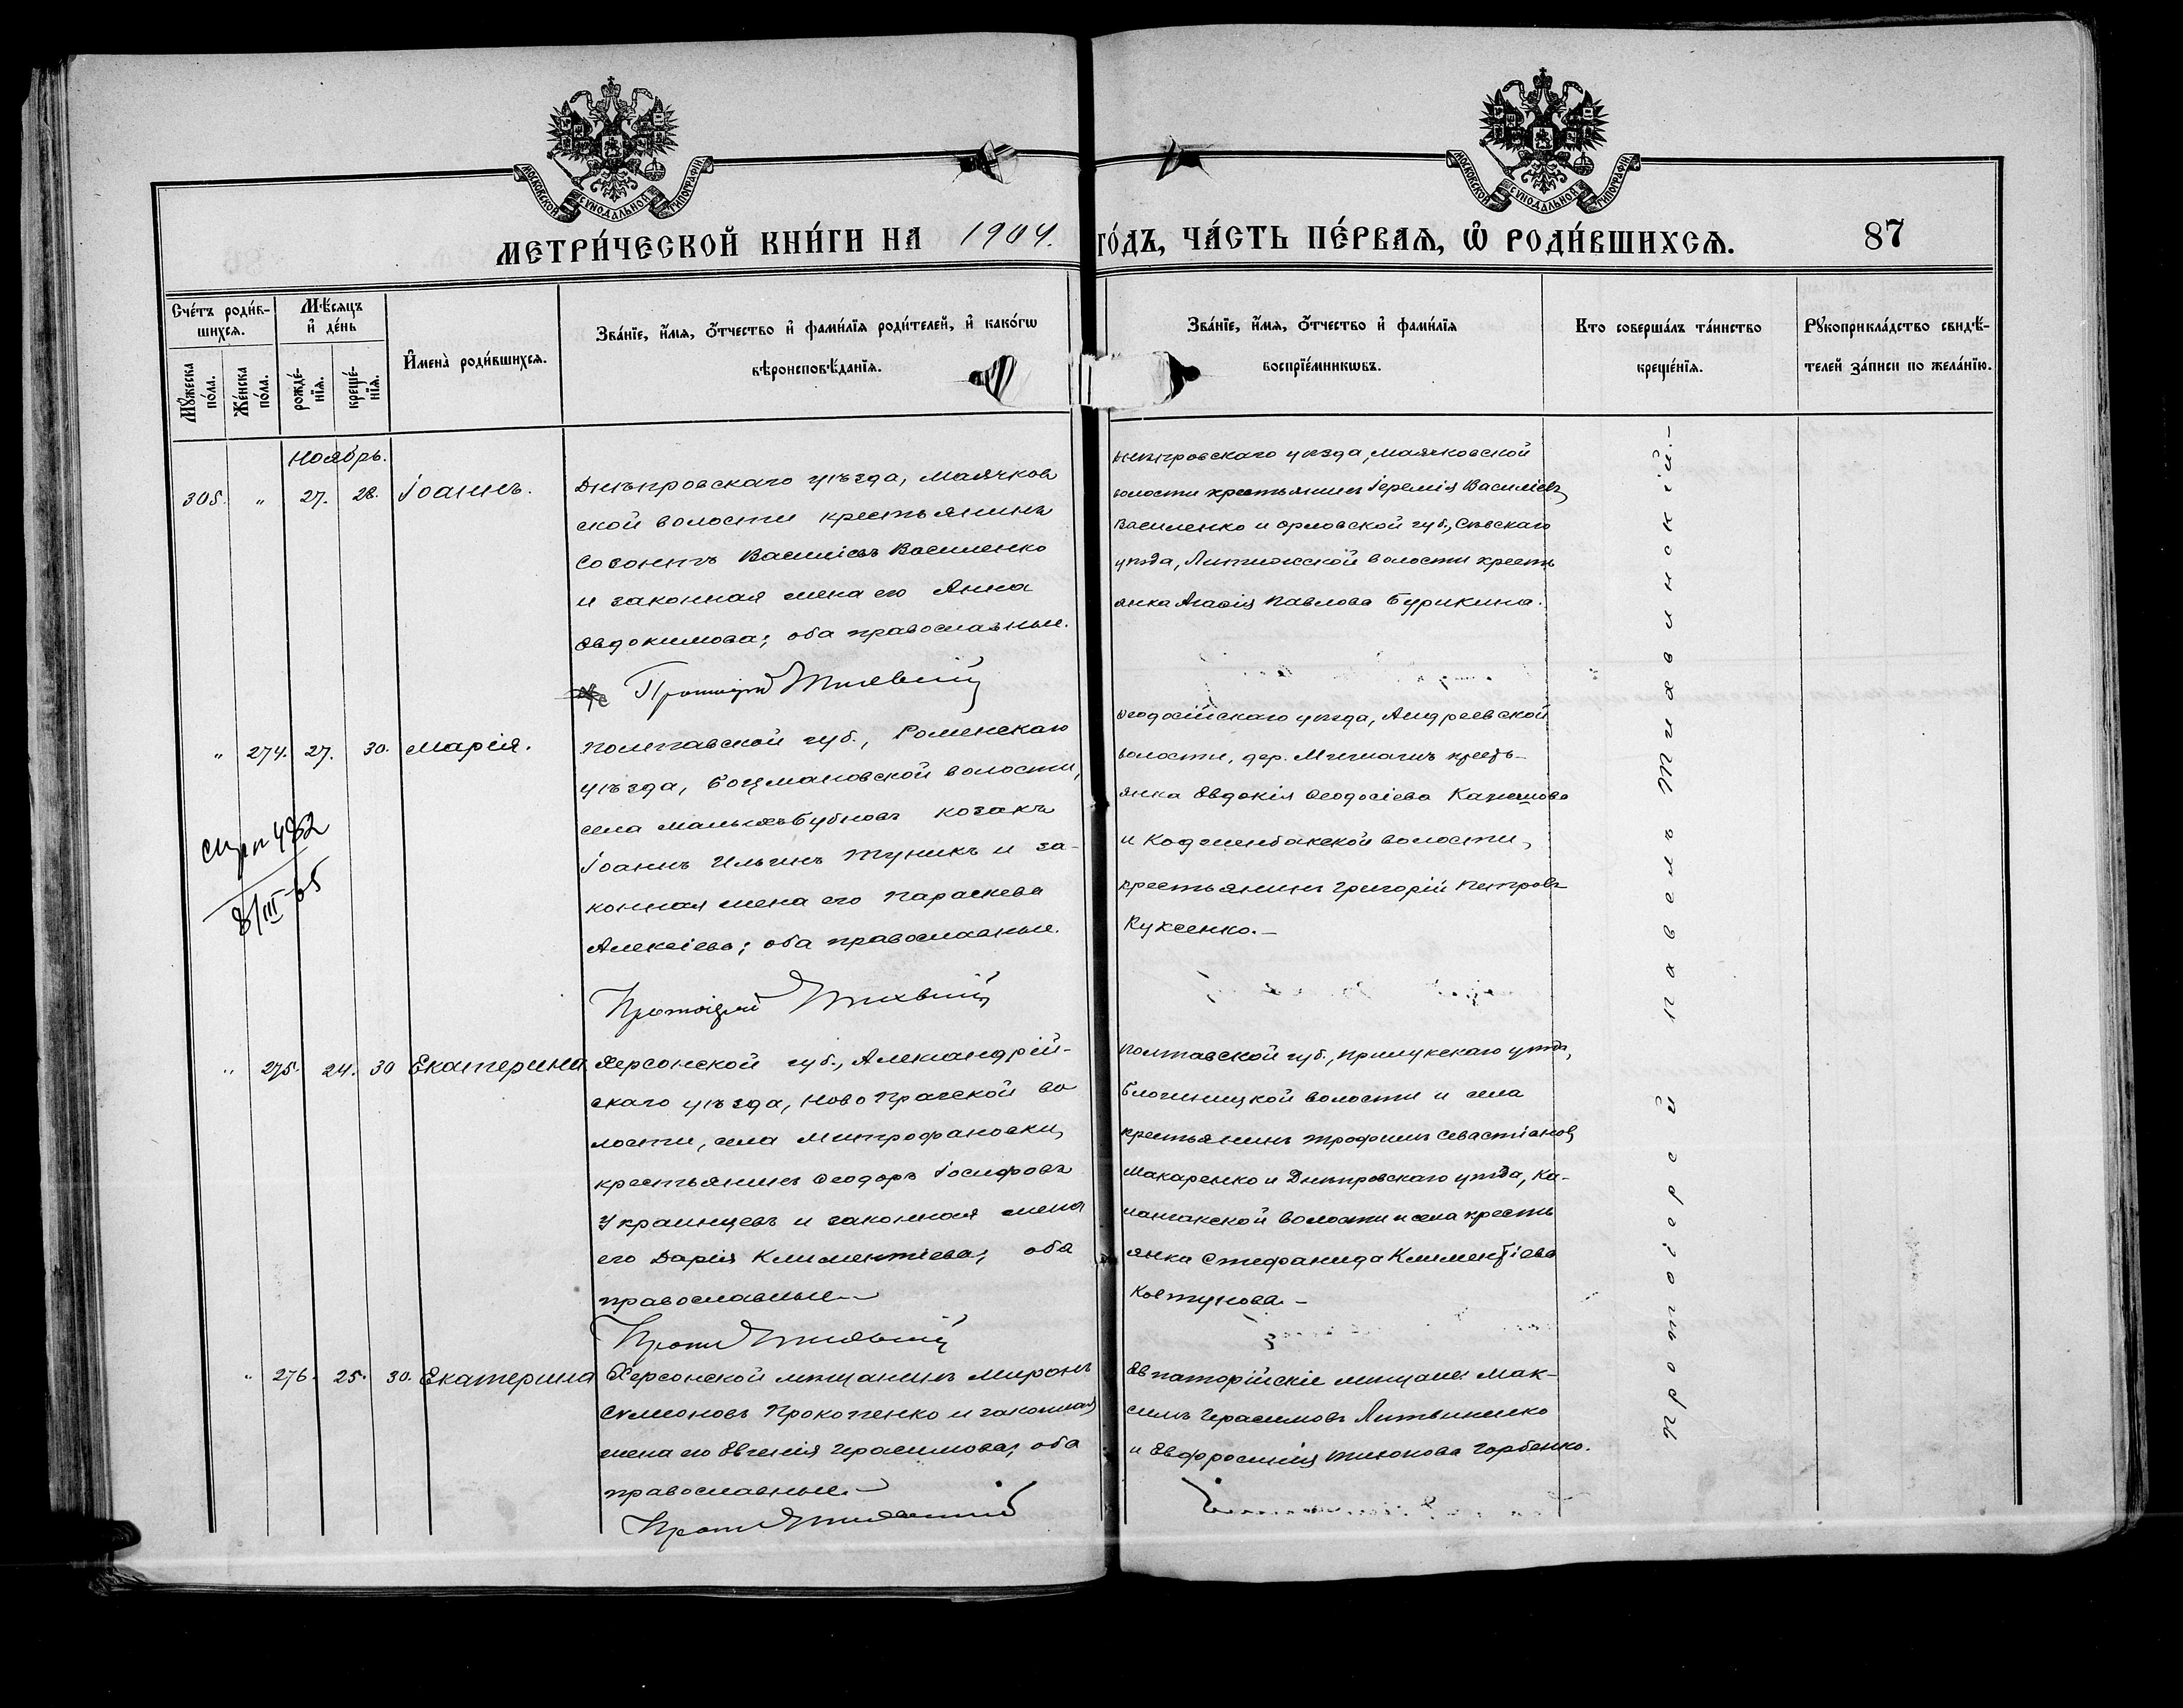 МОСКОВСКОЙ СѴНОДАЛЬНОЙ ТИПОГРАФІИ
МОСКОВСКОЙ СѴНОДАЛЬНОЙ ТИПОГРАФІИ
МЕТРИ́ЧЕСКОЙ КНИ́ГИ НА 1904. ГО́ДЪ, ЧА́СТЬ ПЕ́РВАѦ, Ѽ РОДИ́ВШИХСѦ. 87
Сче́тъ роди́в-
шихся.
Мѣ́сяцъ
и҆ де́нь
Му́жеска
по́ла.
Же́нска
по́ла.
рожде́-
нїя.
креще́-
нїя.
И҆мена̀ роди́вшихся.
Зва́нїе, и҆́мя, ѻ҆́тчество и҆ фами́лїя роди́телей, и҆ како́гѡ
вѣроисповѣ́данїя.
Зва́нїе, и҆́мя, ѻ҆́тчество и҆ фами́лїя
воспрїе́мникѡвъ.
Кто соверша́лъ та́инство
креще́нїя.
Рꙋкоприкла́дство свидѣ́-
телей за́писи по жела́нїю.
Ноябрь.
305. " 27. 28. Іоаннъ.
Днѣпровскаго уѣзда, Маячков
ской волости крестьянинъ
Созонтъ Василіевъ Василенко
и законная жена его Анна
Евдокимова; оба православные.
Протоіерей Тихвинскій
Днѣпровскаго уѣзда, Маячковской
волости крестьянинъ Іеремія Василіевъ
Василенко и Орловской губ., Сѣвскаго
уѣзда, волости кресть
янка Агафія Павлова Бурикина.
" 274. 27. 30. Марія.
Полтавской губ., Роменскаго
уѣзда, Бацмановской волости,
села Малыхъ Бубновъ козакъ
Іоаннъ Ильинъ Туникъ и за-
конная жена его Параскева
Алексіева; оба православные.
Протоіерей Тихвинскій
Ѳеодосійскаго уѣзда, Андреевской
волости, дер. кресть-
янка Евдокія Ѳеодосіева
и волости,
крестьянинъ Григорій Петровъ
Куксенко.-
482
8/III-65
" 275. 24. 30 Екатерина
Херсонской губ., Александрій-
скаго уѣзда, Ново Прагской во
лости, села Митрофановки,
крестьянинъ Ѳеодоръ Іосифовъ
Украинцевъ и законная жена
его Дарія Климентіева; оба
православные.-
Прот. Тихвинскій
Полтавской губ., Прилукскаго уѣзда,
волости и села
крестьянинъ Трофимъ Севастіановъ
Макаренко и Днѣпровскаго уѣзда, Ка-
ланчакской волости и села кресть
янка Стефанида Климентіева
Ковтунова.-
" 276. 25. 30. Екатерина
Херсонской мѣщанинъ Миронъ
Сѵмеоновъ Прокопенко и законная
жена его Евгенія Герасимова; оба
православные.-
Прот. Тихвинскій
Евпаторійскіе мѣщане: Мак-
симъ Герасимовъ Литвиненко
и Евфросинія Тихонова Горбенко.
Протоіерей Павелъ Тихвинскій.-